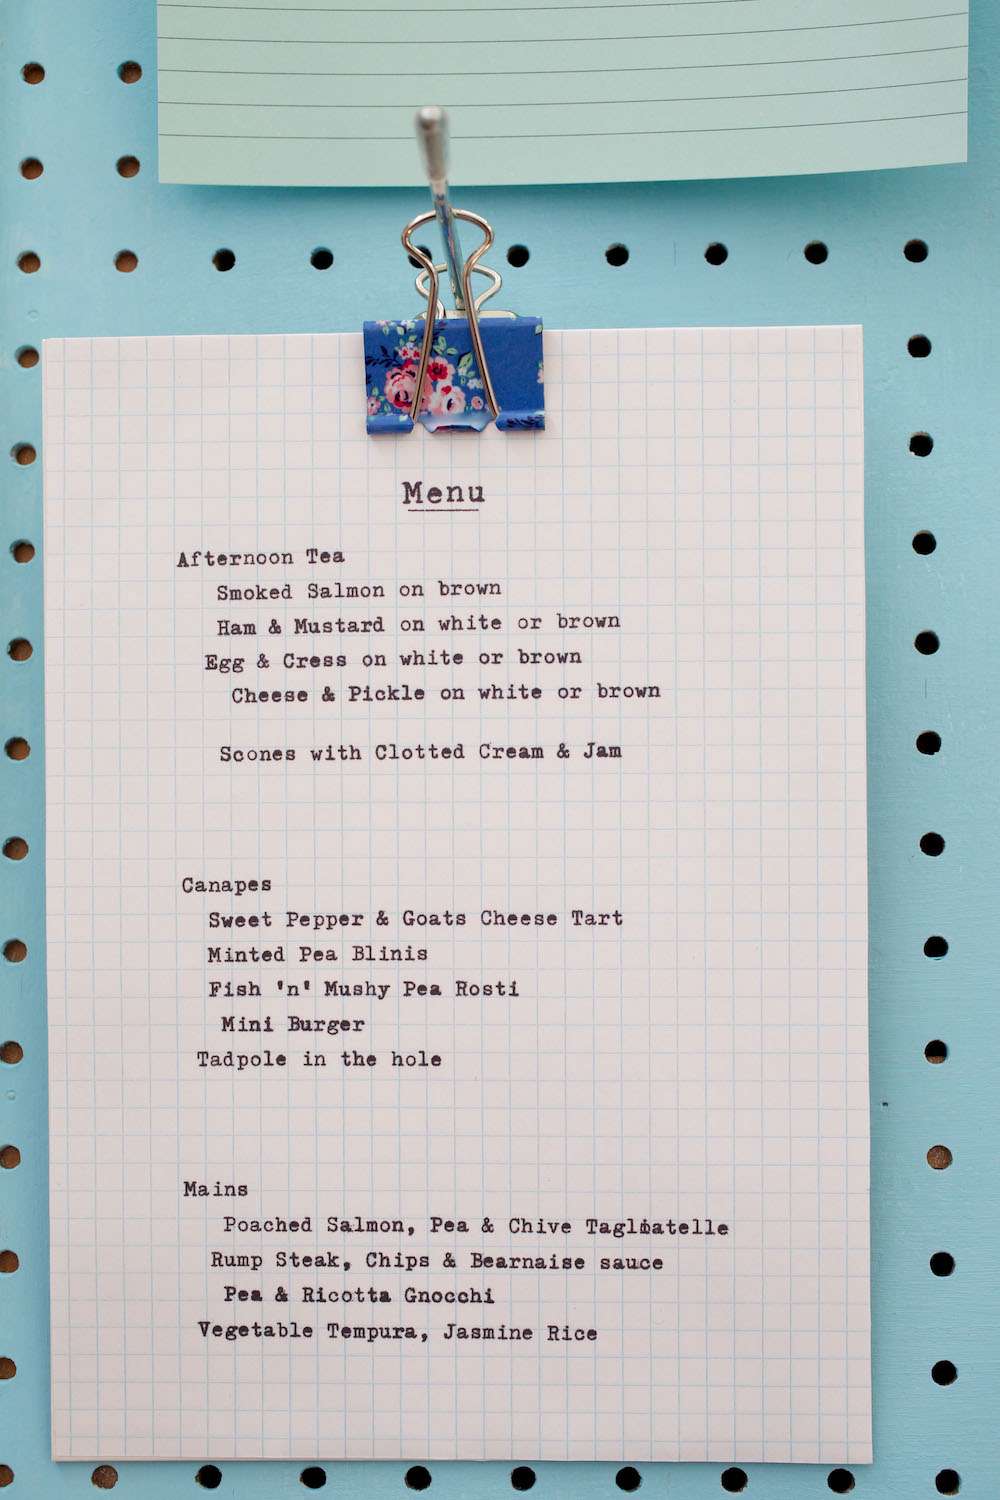 Menu
Afternoon Tea
Smoked Salmon on brown
Ham & Mustard on white or brown
Egg & Cress on white or brown
Cheese & Pickle on white or brown
Scones with Clotted Cream & Jam
Canapes
Sweet Pepper & Goats Cheese Tart
Minted Pea Blinis
Fish 'n' Mushy Pea Rosti
Mini Burger
Tadpole in the hole
Mains
Poached Salmon, Pea & Chive Tagliatelle
Rump Steak, Chips & Bearnaise sauce
Pea & Ricotta Gnocchi
Vegetable Tempura, Jasmine Rice